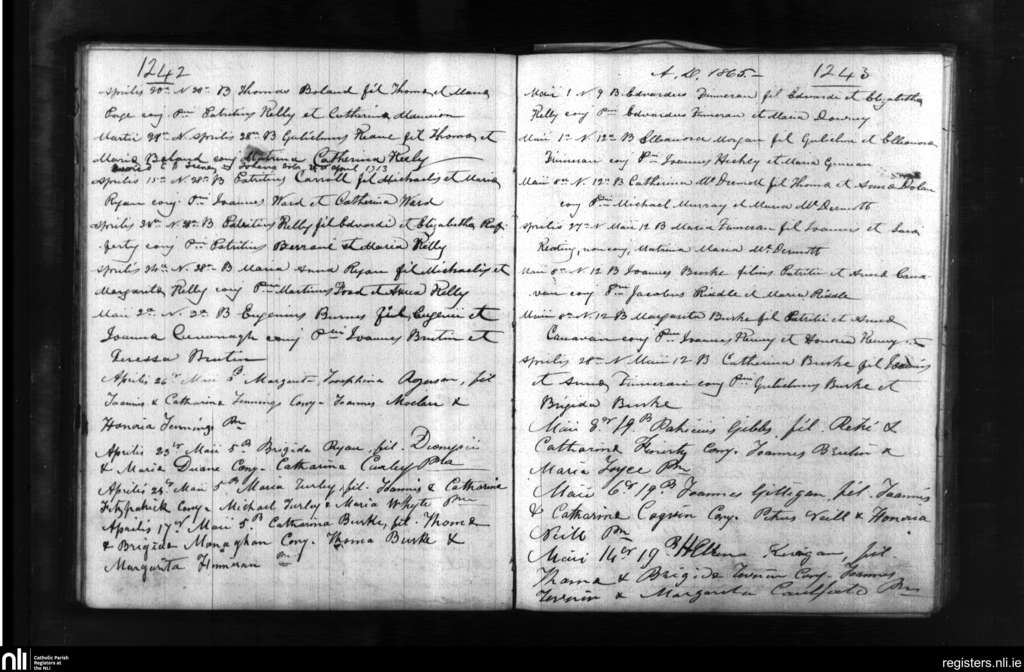 1242
Aprilis 20th N 20th B Thomas Boland fil Thoma et Maria
Page conj Pm Patritius Kelly et Catherina Mannion
Martii 28th N Aprilis 28th B Gulielmus Keane fil Thoma et
Maria Boland conj Matrina Catherina Keely
Aprilis 15th N. 28th B Patritius Carroll fil Michaelis et Maria
Ryan conj Pm Joannes Ward et Catherina Ward
Aprilis N. B Patritius Kelly fil Edvardi et Elizabetha Raf-
ferty conj Pm Patritius et Maria Kelly
Aprilis 24th N. 28th B Maria Anna Ryan fil Michaelis et
Margarita Kelly conj Pm Martinus Ford et Anna Kelly
Maii 2th N. B Eugenius Burns fil Eugenii et
Joanna Cavanagh conj Pni Joannes Brutin et
Teressa Brutin
Aprilis 26th Maii 5 B Margarita Josephina Rogerson, fil
Joannis & Catharina Jennings Conj- Joannes &
Honoria Jennings Pm
Aprilis 23th Maii 5th B Brigida Ryan fil- Dionysii
& Maria Duane Conj- Catharina Cauley Pna
Aprilis 24th Maii 5th B Maria Turley, fil- Joannis & Catharine
Fitzpatrick Conj- Michael Turley & Maria Whyte Pm
Aprilis 17th Maii 5th B Catharina Burke, fil- Thoma
& Brigida Monaghan Conj. Thoma Burke &
Margarita Finneran Pm
A. D. 1865- 1243
Maii 1 N 9 B Edvardus Finneran fil Edvardi et Elizabetha
Kelly conj Pm Edvardus Finneran et Maria Downey
Maii 1th N 12th B Elleanora Morgan fil Gulielmi et Elleanora
Finneran conj Pm Joannes Hickey et Maria
Maii 8th N. 12th B Catherina McDermott fil Thoma et Anna Dolan
conj Pm Michael Murray et Maria McDermott
Aprilis 27th N Maii 12 B Maria Finneran fil Joannis et
non conj Matrina Maria McDermott
Maii 8th N. 12 B Joannes Burke filius Patritii et Anna Cana-
van conj Pm Jacobus Riddle et Maria Riddle
Maii 8th N. 12 B Margarita Burke fil Patritii et Anna
Canavan conj Pm Joannes Fleury et Honoria Fleury
Aprilis 28th N Maii 12 B Catherina Burke fil Joannis
et Anna Finneran conj Pm Gulielmus Burke et
Brigida Burke
Maii 8th 19 B Patricius Gibbs fil. &
Catharina Finerty Conj. Joannes Brutin &
Maria Joyce Pm
Maii 6th 19 B Joannes Gilligan, fil. Joannis
& Catharina Cogvin Conj. Petrus Neill & Honoria
Neill Pm
Maii 14th 19 B Hellena Kerrigan, fil
Thoma & Brigida Conj. Joannes
& Margarita Caulfield Pm
nli
Catholic Parish
Registers at
the NLI
registers.nli.ie